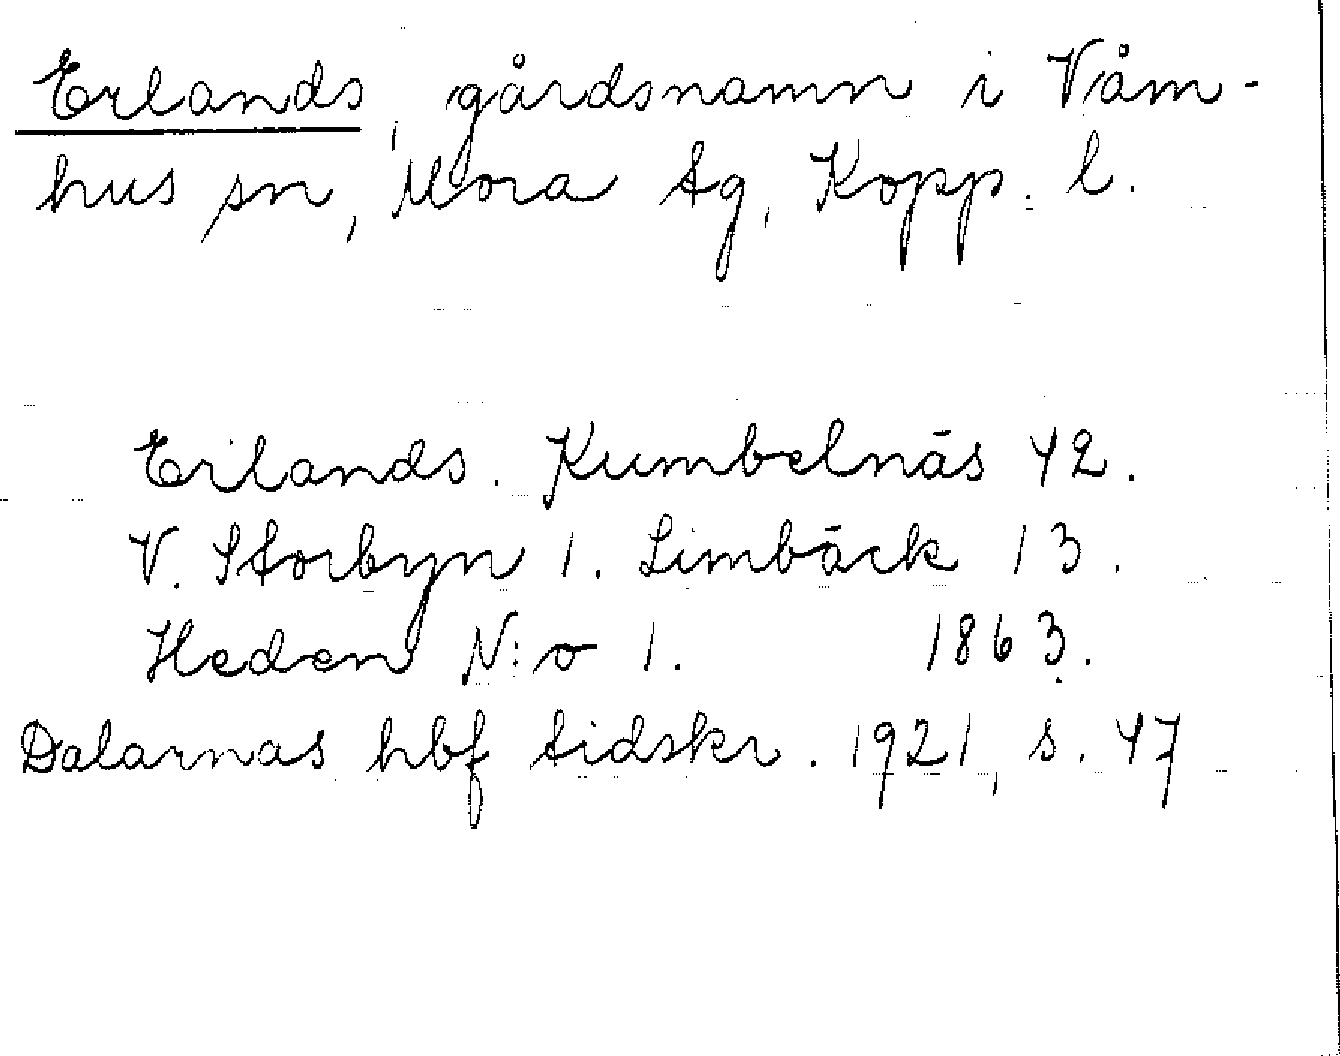 Erlands, gårdsnamn i Våm-
hus sn, Mora tg, Kopp. l.
Erlands. Kumbelnäs 42.
V. Storbyn 1. Limbäck 13.
Heden N:o 1. 1863.
Dalarnas hbf tidskr. 1921, s. 47